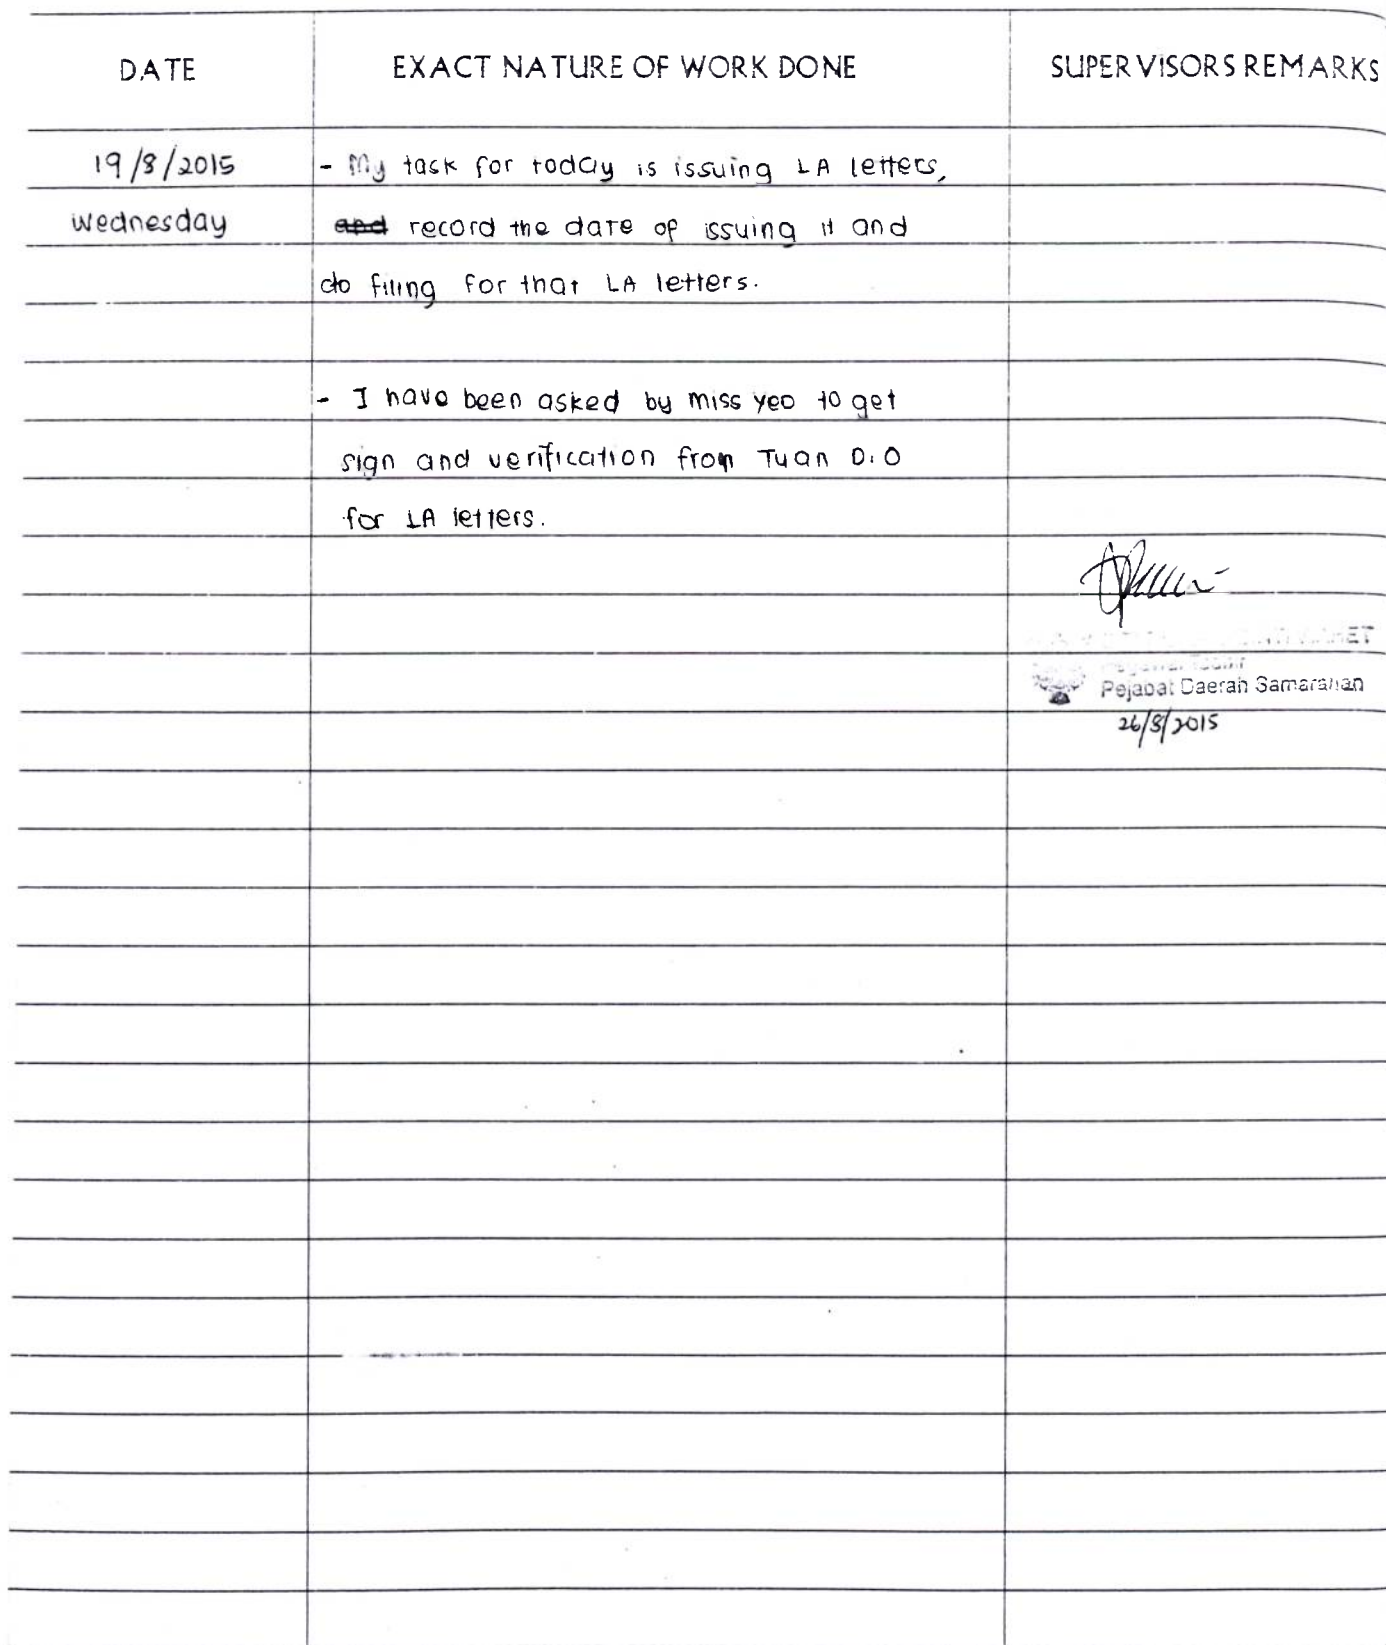 DATE EXACT NATURE OF WORK DONE SUPERVISORS REMARKS
19/8/2015 - My task for today is issuing LA letters,
Wednesday and record the date of issuing it and
do filing for that LA letters.
- I have been asked by miss yeo to get
sign and verification from Tuan D.O
for LA letters.
Pejabat Daerah Samarahan
26/8/2015